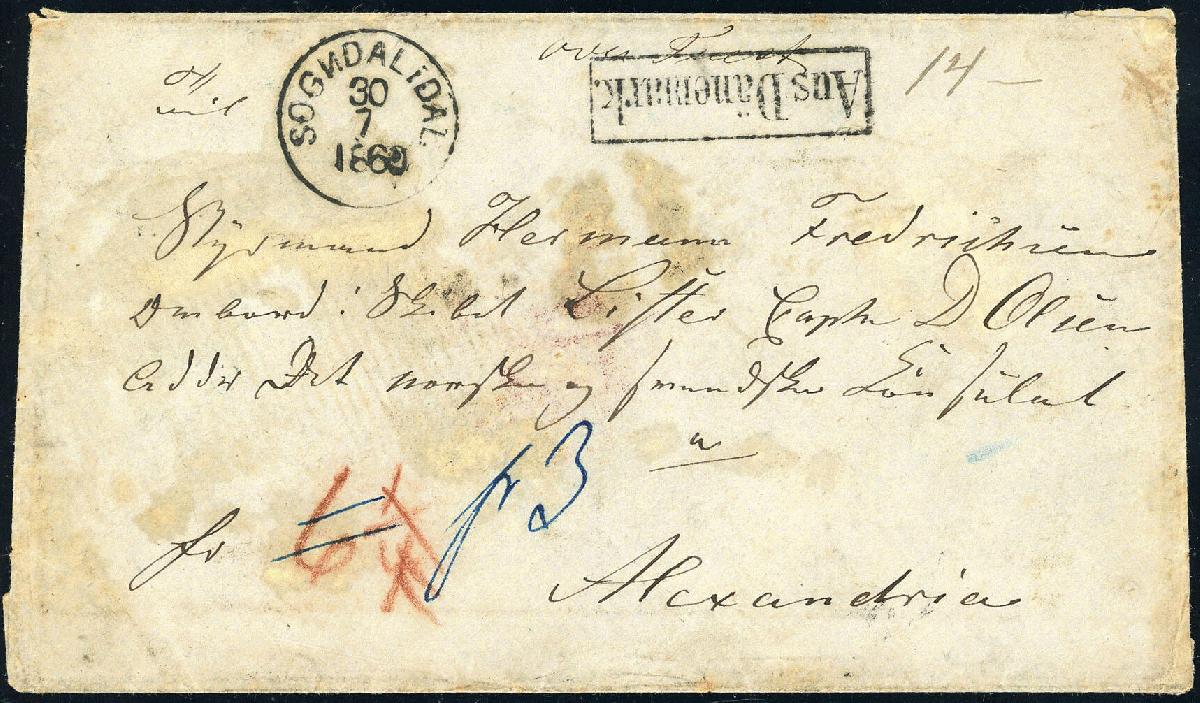 over Triest
14 –
Til
SOGNDAL i DAL.
30
7
1860
Aus Dänemark.
Styrmand Hermann Fredrichsen
Ombord i Skibet Lister Captn D Olsen
Addr Det norske og svendske Konsulat
a
fr
fr 3
Alexandria